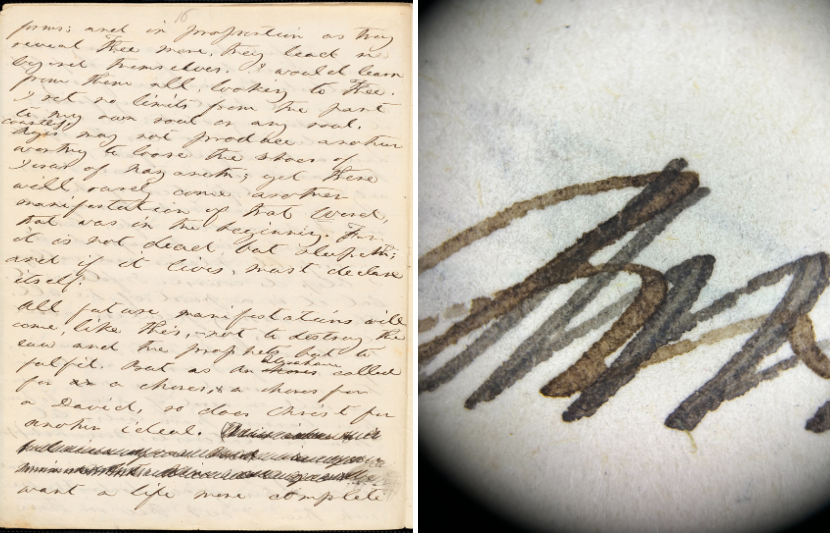 16
forms; and in proportion as they
reveal Thee more, they lead me
beyond themselves. I would learn
from them all, looking to Thee.
I set no limits from the past
to my own soul or any soul.
Countless ages may not produce another
worthy to loose the shoes of
Jesus of Nazareth; yet there
will surely come another
manifestation of that Word,
that was in the beginning. For,
it is not dead but sleepeth;
and if it lives, must declare
itself.
All future manifestations will
come, like this, not to destroy the
law and the prophets but to
fulfil. But as an Abraham called
for a Moses, & a Moses for
a David, so does Christ for
another ideal.
want a life more complete